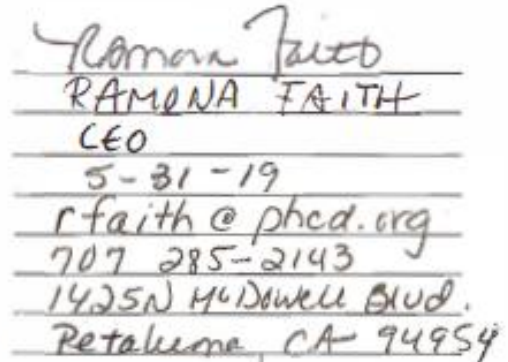 Ramona Faith
RAMONA FAITH
CEO
5-31-19
rfaith@phcd.org
707 285-2143
1425N McDowell Blvd.
Petaluma, CA 94954